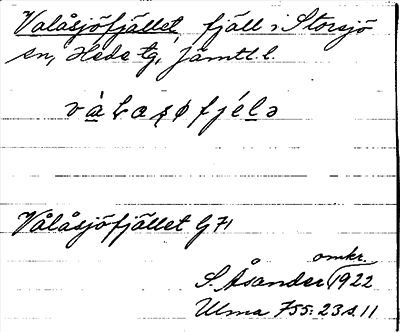 Valåsjöfjället, fjäll i Storsjö
sn, Heds tg, Jämtl. l.
Vålåsjöfjället G71
omkr.
S. Åsander 1922
Ulma 755:23 s. 11